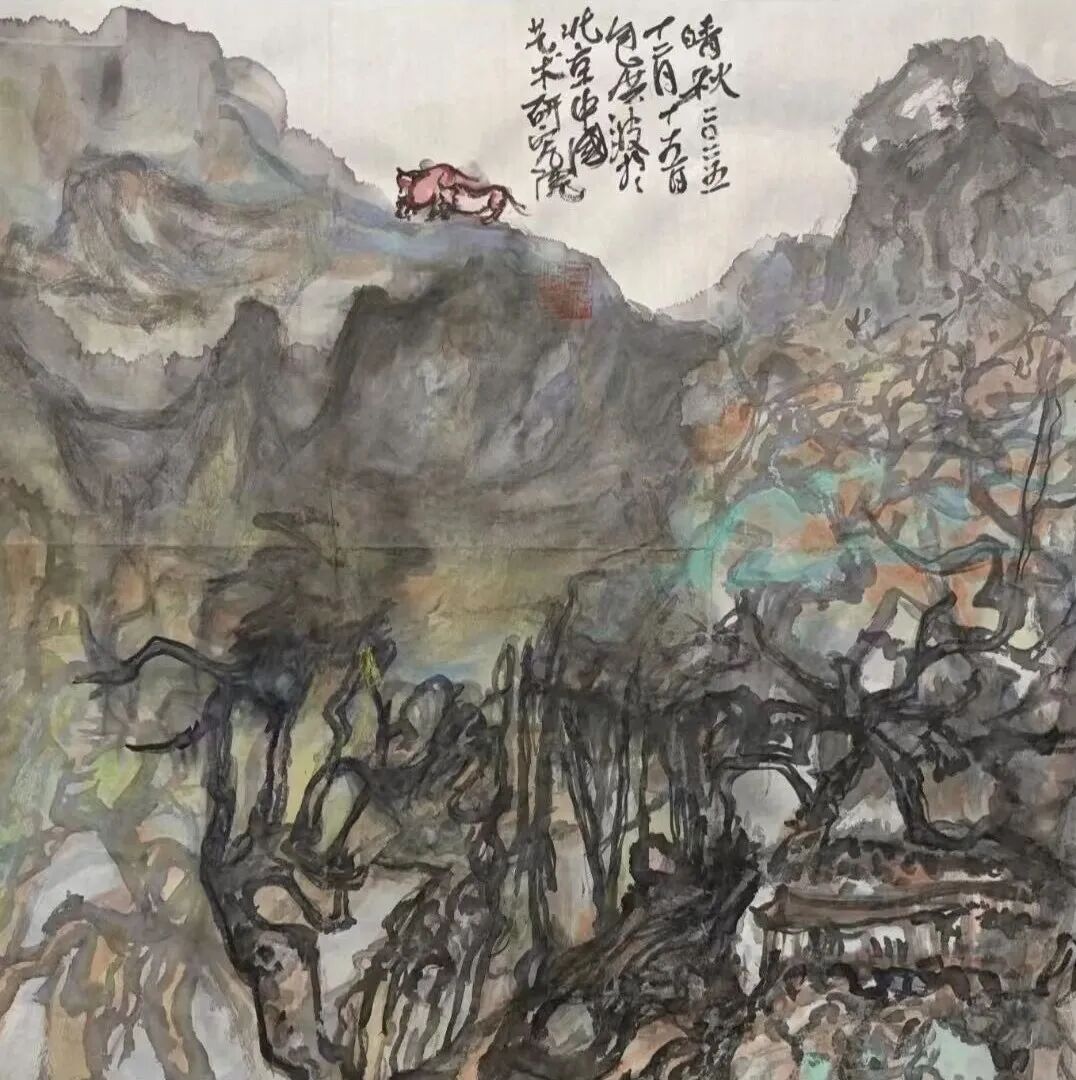 晴秋 二〇二五
十二月十 日
包廣波於
北京中國
艺术研究院